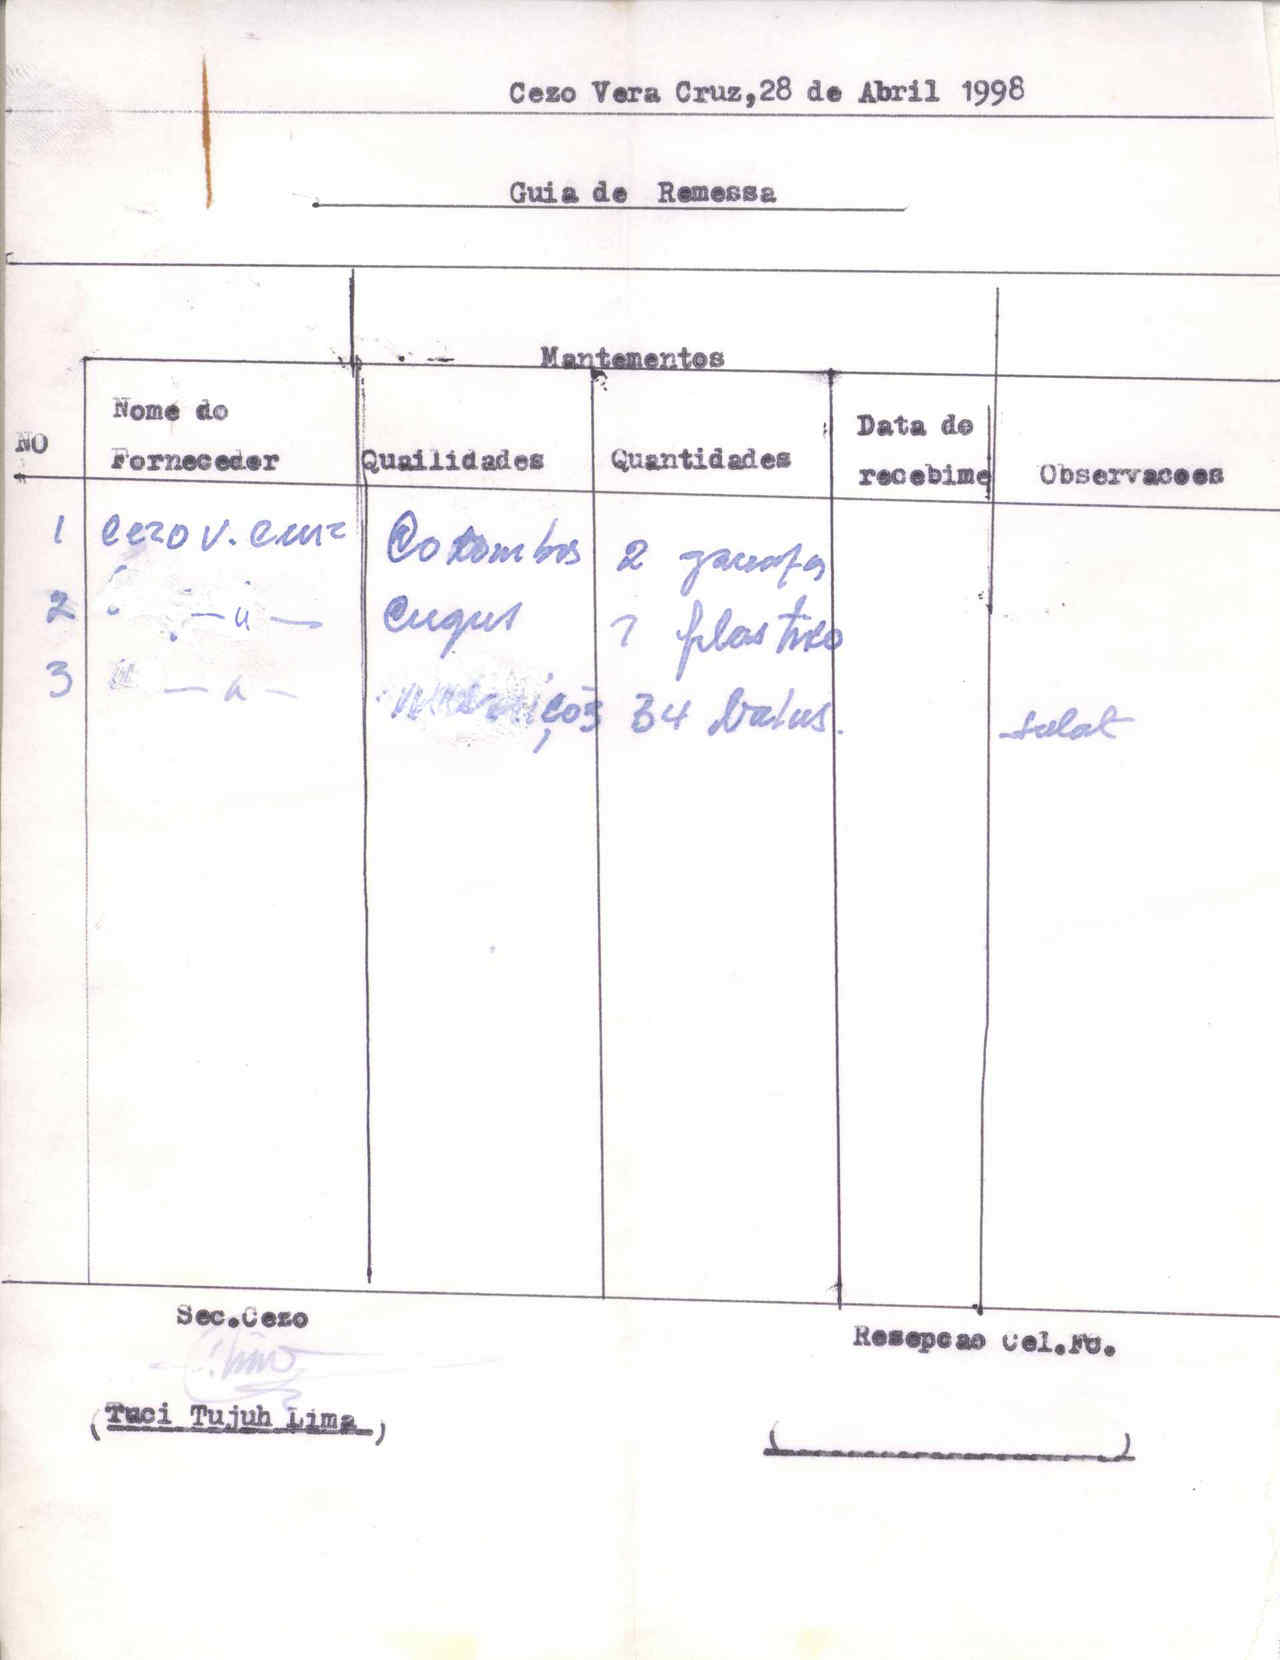 Cezo Vera Cruz,28 de Abril 1998
Guia de Remessa
Mantementos
NO Nome do Forneceder Quailidades Quantidades Data do recebime Observacoes
1 Cezo V. Cruz 2
2 " — " — 1 plastico
3 " — " — 34
Sec.Cezo
Resepcao Cel.FU.
(Tuci Tujuh Lima)
( )